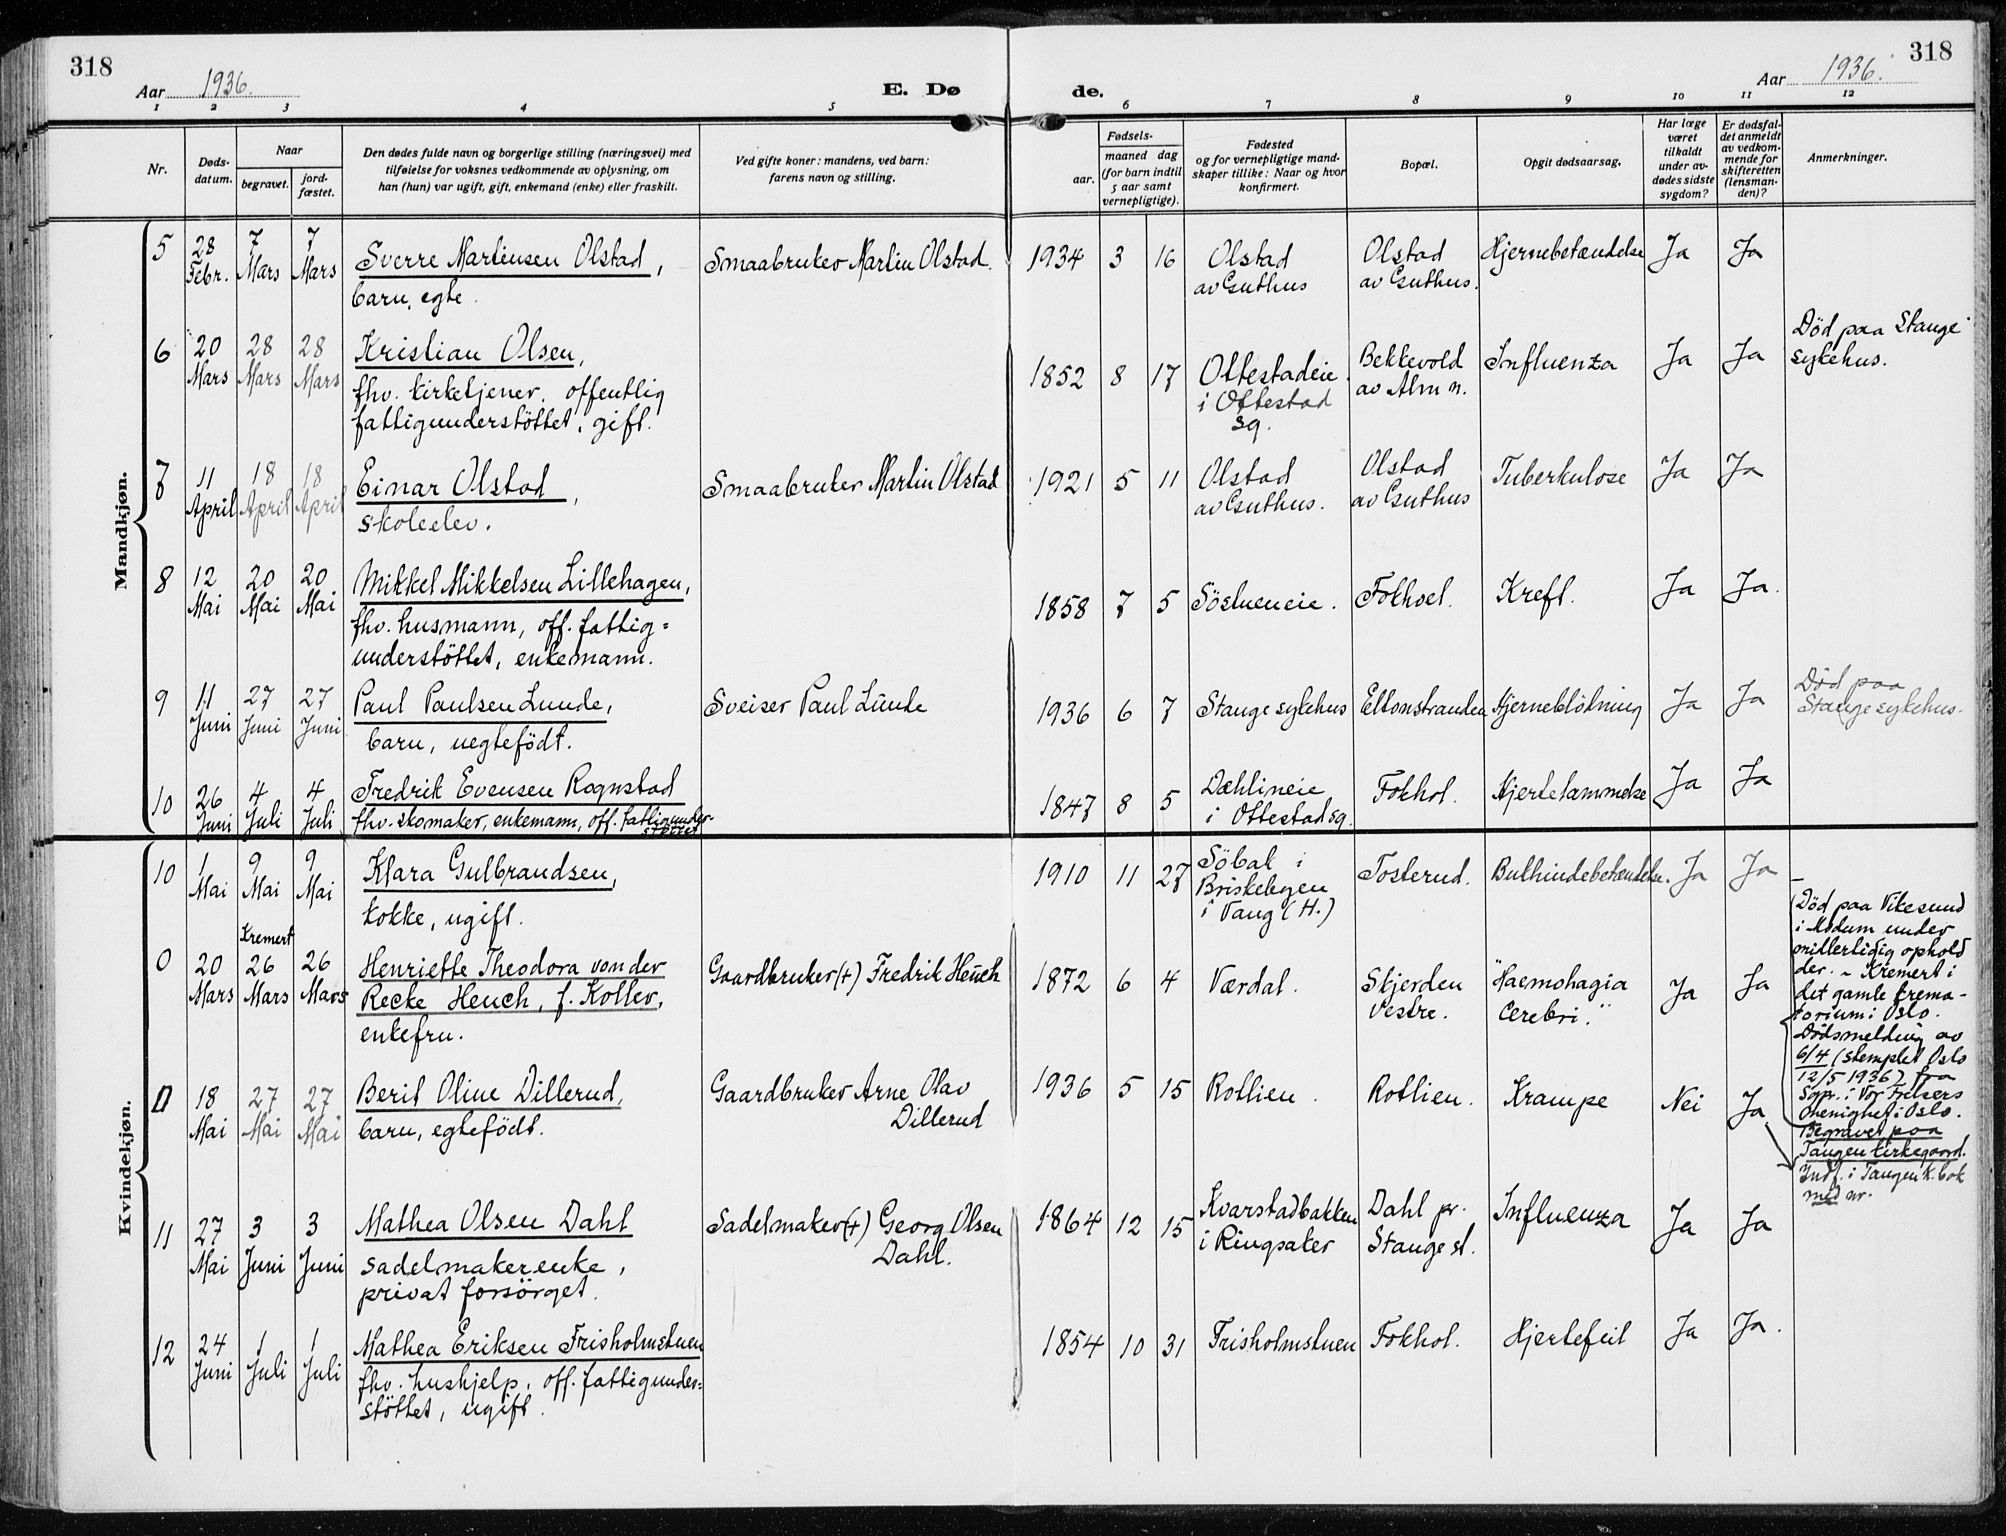 318
318
Aar 1936.
E. Dø
de.
Aar 1936.
1 2 3 4 5 6 7 8 9 10 11 12
Nr.
Døds-
datum.
Naar
begravet.
jord-
fæstet.
Den dødes fulde navn og borgerlige stilling (næringsvei) med
tilføielse for voksnes vedkommende av oplysning, om
han (hun) var ugift, gift, enkemand (enke) eller fraskilt.
Ved gifte koner: mandens, ved barn:
farens navn og stilling.
Fødsels-
aar.
maaned dag
(for barn indtil
5 aar samt
vernepligtige).
Fødested
og for vernepligtige mand-
skaper tillike: Naar og hvor
konfirmert.
Bopæl.
Opgit dødsaarsag.
Har læge
været
tilkaldt
under av-
dødes sidste
sygdom?
Er dødsfal-
det anmeldt
av vedkom-
mende for
skifteretten
(lensman-
den)?
Anmerkninger.
Mandkjøn.
5 28 7 7 Sverre Martinsen Olstad, Smaabruker Martin Olstad. 1934 3 16 Olstad Olstad Hjernebetændelse Ja Ja
Febr. Mars Mars barn, egte. av Guthus av Guthus.
6 20 28 28 Kristian Olsen, 1852 8 17 Ottestadeie Bekkevold Influenza Ja Ja Død paa Stange
Mars Mars Mars fhv. kirketjener, offentlig i Ottestad av Alm n. sykehus.
fattigunderstöttet, gift. sg.
7 11 18 18 Einar Olstad, Smaabruker Martin Olstad 1921 5 11 Olstad Olstad Tuberkulose Ja Ja
April April April skoleelev. av Guthus. av Guthus
8 12 20 20 Mikkel Mikkelsen Lillehagen, 1858 7 5 Söstueneie. Fokhol. Kreft. Ja Ja.
Mai Mai Mai fhv. husmann, off. fattig=
understöttet, enkemann.
9 11 27 27 Paul Paulsen Lunde, Sveiser Paul Lunde 1936 6 7 Stange sykehus Ekkonstranden Hjerneblödning Ja Ja Död paa
Juni Juni Juni barn, uegtefödt. Stange sykehus.
10 26 4 4 Fredrik Evensen Rognstad 1847 8 5 Dæhlineie Fokhol. Hjertelammelse Ja Ja
Juni Juli Juli fhv. skomaker, enkemann, off. fattigunder- i Ottestad sg.
støttet
Kvindekjøn.
10 1 9 9 Klara Gulbrandsen, 1910 11 27 Söbak i Fosterud. Bukhindebetændelse. Ja Ja
Mai Mai Mai kokke, ugift. Briskebyen
i Vang (H.)
Kremert
0 20 26 26 Henriette Theodora von der Gaardbruker (+) Fredrik Heuch 1872 6 4 Værdal. Skjerden "Haemohagia Ja Ja
Mars Mars Mars Recke Heuch, f. Koller, Vestre. Cerebri."
enkefru.
Død paa Vikesund
i Modum under
midlertidig ophold
der. - Kremert i
det gamle krema-
torium i Oslo.
Dødsmelding av
6/4 (stemplet Oslo
12/5 1936) fra
Sgpr. i Vor Frelsers
menighet i Oslo.
Begravet paa
Tangen kirkegaard.
Indf. i Tangen k. bok
med nr.
0 18 27 27 Berit Oline Dillerud, Gaardbruker Arne Olav 1936 5 15 Rotlien. Rotlien. Krampe Nei Ja
Mai Mai Mai barn, egtefödt. Dillerud
11 27 3 3 Mathea Olsen Dahl Sadelmaker (+) Georg Olsen 1864 12 15 Kvarstadbakken Dahl pr. Influenza Ja Ja
Mai Juni Juni sadelmakerenke, Dahl. i Ringsaker Stange st.
privat forsörget.
12 24 1 1 Mathea Eriksen Frisholmstuen 1854 10 31 Frisholmstuen Fokhol. Hjertefeil Ja Ja.
Juni Juli Juli fhv. hushjelp, off. fattigunder=
stöttet, ugift.